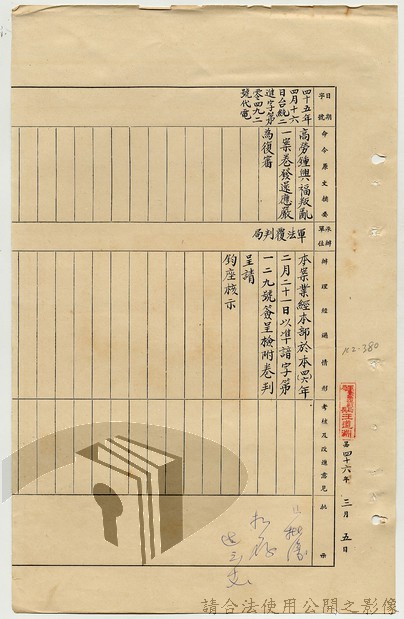 日期
字號
四十五年
四月十六
日台統二
進字第
零四九二
號代電
命令原文摘要
高勞鍾興福叛亂
一案卷發還應嚴
為復審
承辦單位
軍法覆判局
辦理經過情形
本案業經本部於本(四六)年
二月二十一日以準諳字第
一二九號簽呈檢附卷判
呈請
鈞座核示
考核及改進意見
批示
112-380
四十六年 三月 五日
請合法使用公開之影像